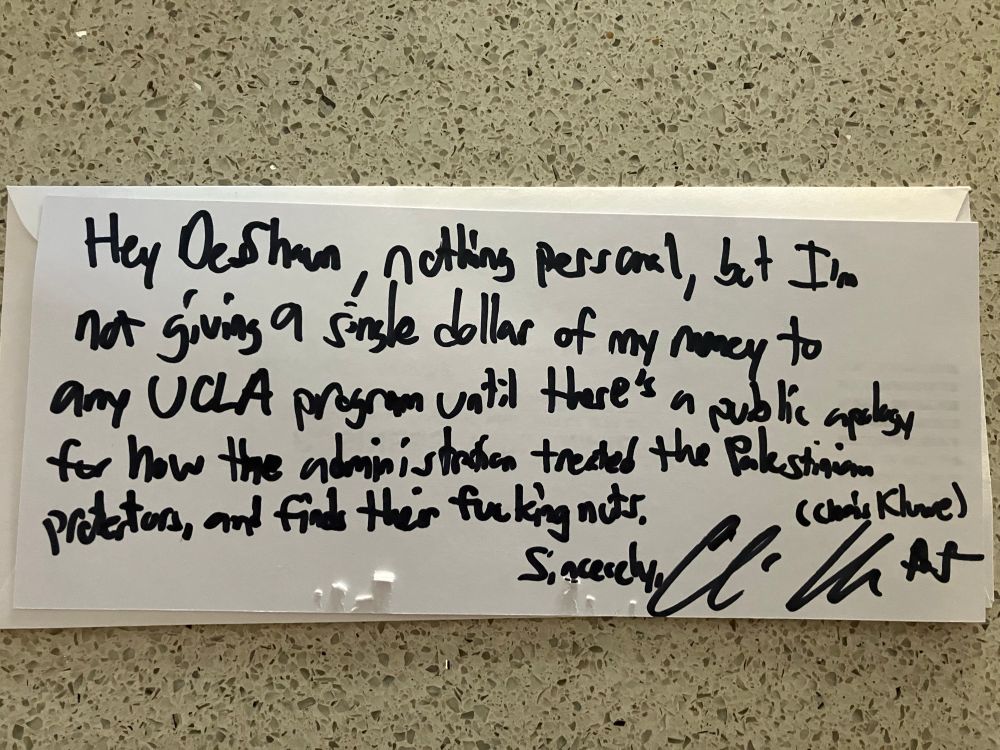 Hey DeShaun, nothing personal, but I'm
not giving a single dollar of my money to
any UCLA program until there's a public apology
for how the administration treated the Palestinian
protestors, and finds their fucking nuts.
(Chris Kluwe)
Sincerely,